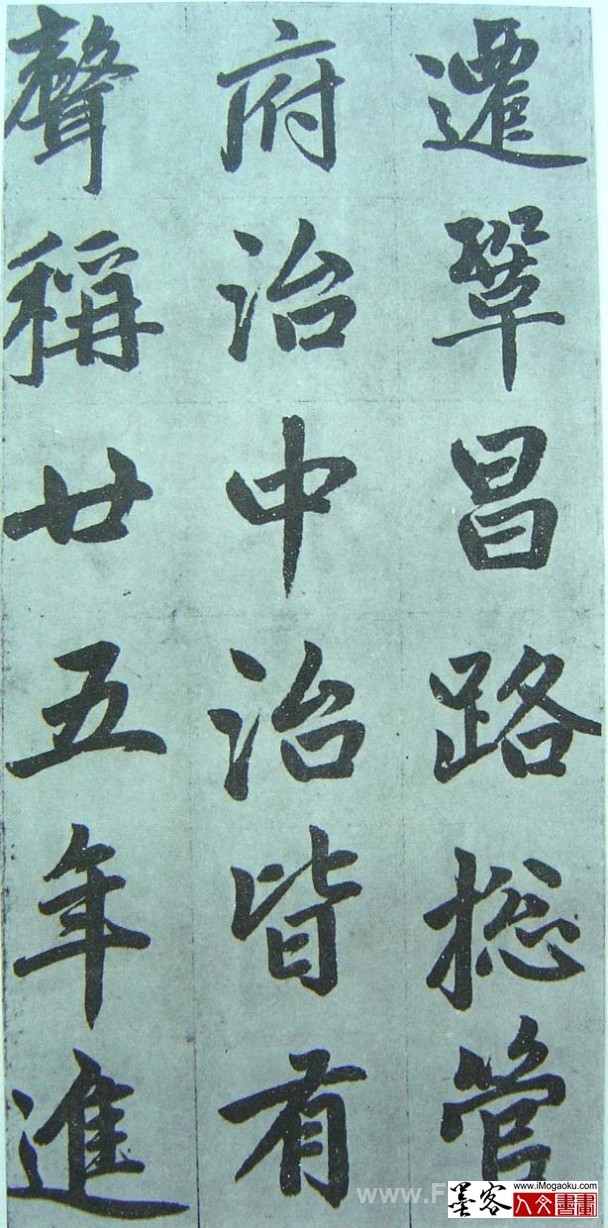 遷鞏昌路揔管
府治中治皆有
聲稱廿五年進
www.F
墨客
www.iMogaoku.com
人文書畫